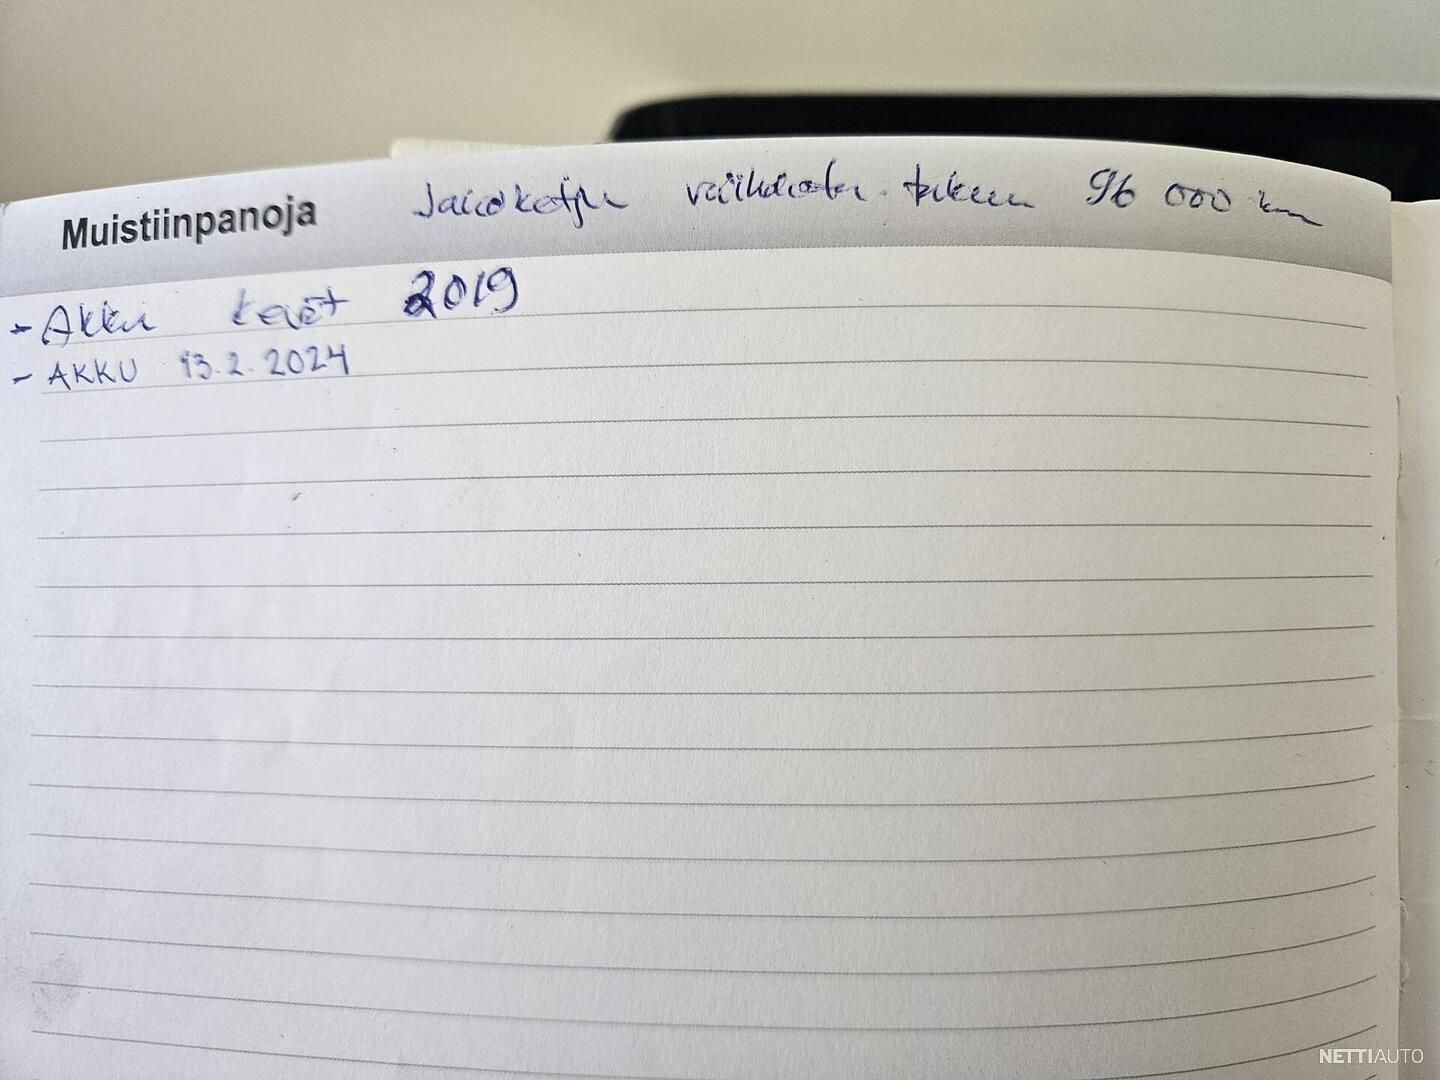 Muistiinpanoja Jakoketju vaihdettu 96 000 km
- Akku kevät 2019
- AKKU 13.2.2024
NETTIAUTO